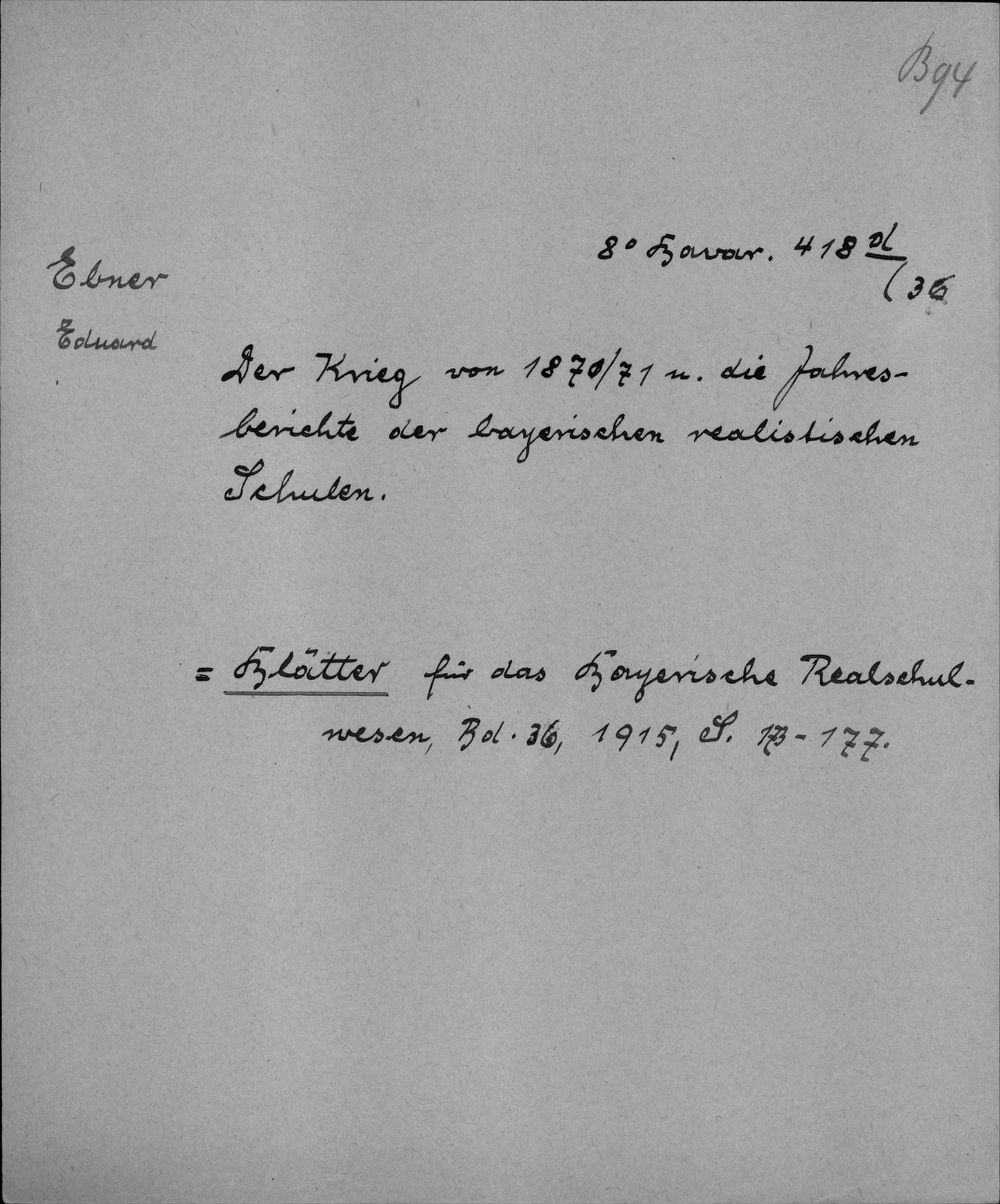 B94
8° Bavar. 418 d
(36
Ebner
Eduard
Der Krieg von 1870/71 u. die Jahres-
berichte der bayerischen realistischen
Schulen.
= Blätter für das Bayerische Realschul-
wesen, Bd. 36, 1915, S. 173-177.